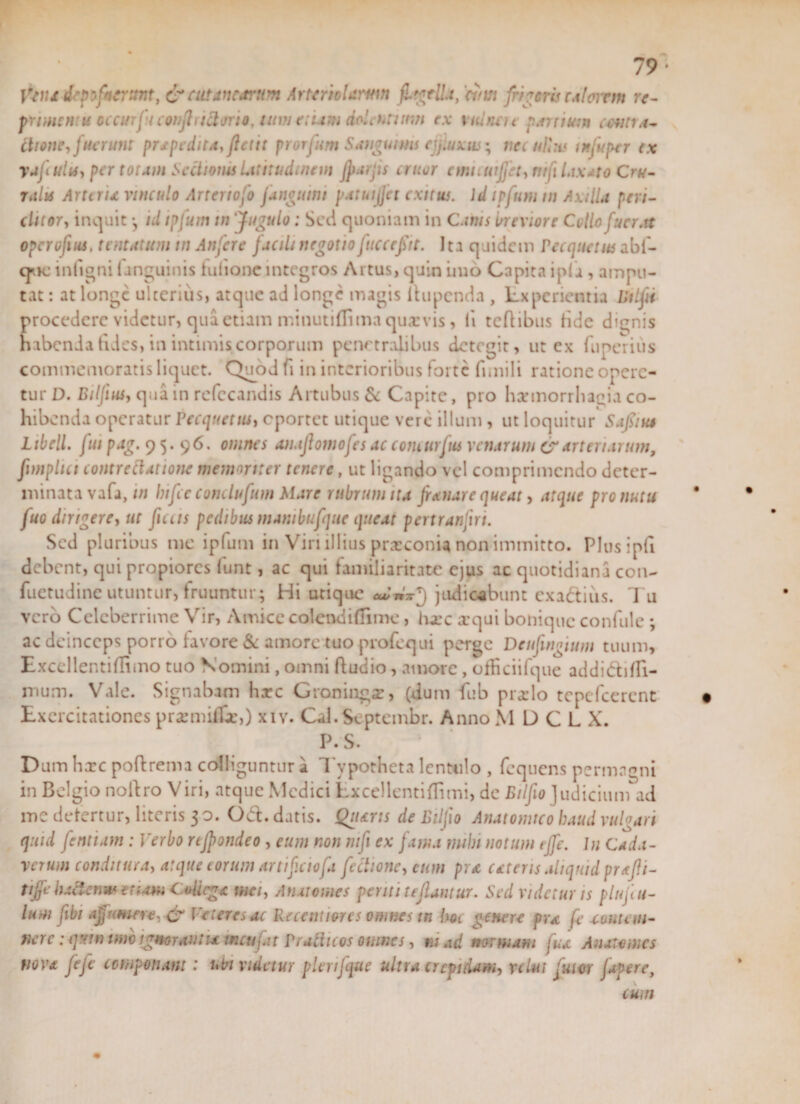 79
Venæ deposuerunt, & cutanearum Arteriolarum flagella, cùm frigoris calorem re-
primentis occursu constrictorio, tum etiam dolentium ex vulnere partium contra-
ctione, fuerunt præpedita, stetit prorsum Sanguinis effluxus; nec ullus insuper ex
vasculis, per totam Sectionis Latitudinem sparsis cruor emicuisset, nisi laxato Cru-
ralis Arteriæ vinculo Arterioso sanguini patuisset exitus. Id ipsum in Axilla peri-
clitor, inquit; id ipsum in Jugulo: Sed quoniam in Canis breviore Collo fuerat
operosius, tentatum in Ansere facili negotio successit. Ita quidem Pecquetus abs-
que insigni sanguinis fusione integros Artus, quin imò Capita ipsa, ampu-
tat: at longè ulterius, atque ad longè magis stupenda, Experientia Bilsii
procedere videtur, quâ etiam minutissima quævis, si testibus fide dignis
habenda fides, in intimis corporum penetralibus detegit, ut ex superiùs
commemoratis liquet. Quòd si in interioribus fortè simili ratione opere-
tur D. Bilsius, quâ in resecandis Artubus & Capite, pro hæmorrhagia co-
hibenda operatur Pecquetus, oportet utique verè illum, ut loquitur Saßius
Libell. sui pag. 95. 96. omnes anastomoses ac concursus venarum & arteriarum,
simplici contrectatione memoriter tenere, ut ligando vel comprimendo deter-
minata vasa, in hisce conclusum Mare rubrum ita frænare queat, atque pro nutu
suo dirigere, ut siccis pedibus manibusque queat pertransiri.
Sed pluribus me ipsum in Viri illius præconia non immitto. Plus ipsi
debent, qui propiores sunt, ac qui familiaritate ejus ac quotidianâ con-
suetudine utuntur, fruuntur; Hi utique judicabunt exactiùs. Tu
verò Celeberrime Vir, Amice colendissime, hæc æqui bonique consule;
ac deinceps porrò favore & amore tuo prosequi perge Deusingium tuum,
Excellentissimo tuo Nomini, omni studio, amore, officiisque addictissi-
mum. Vale. Signabam hæc Groningæ, (dum sub prælo tepescerent
Exercitationes præmissæ,) XIV. Cal. Septembr. Anno M D C L X.
P. S.
Dum hæc postrema colliguntur à Typotheta lentulo, sequens permagni
in Belgio nostro Viri, atque Medici Excellentissimi, de Bilsio Judicium ad
me defertur, literis 30. Oct. datis. Quæris de Bilsio Anatomico haud vulgari
quid sentiam: Verbo respondeo, eum non nisi ex fama mihi notum esse. In Cada-
verum conditura, atque eorum artificiosa sectione, eum præ cæteris aliquid præsti-
tisse hactenus etiam Collegæ mei, Anatomes periti testantur. Sed videtur is pluscu-
lum sibi assumere, & Veteres ac Recentiores omnes in hoc genere præ se contem-
nere: quin imò ignorantiæ incusat Practicos omnes, ni ad normam suæ Anatomes
novæ sese componant: ubi videtur plerisque ultra crepidam, velut sutor sapere,
cum